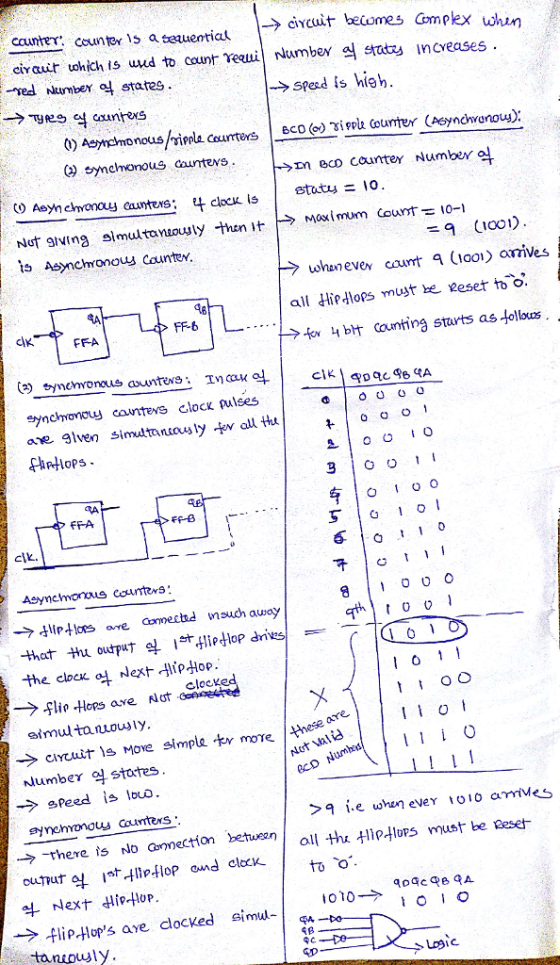 Counter: Counter is a sequential
circuit which is used to count requi
-red Number of states.
→ Types of counters
(1) Asynchronous/ripple counters
(2) synchronous counters.
(1) Asynchronous counters: If clock is
Not giving simultaneously then it
is Asynchronous Counter.
QA
QB
clk
FF-A
FF-B
(2) synchronous counters: In case of
synchronous counters clock pulses
are given simultaneously for all the
flipflops.
QA
QB
FF-A
FF-B
clk.
Asynchronous counters:
→ flipflops are connected in such away
that the output of 1st flipflop drives
the clock of Next flipflop.
→ flip flops are Not connected clocked
simultaneously.
→ circuit is More simple for more
Number of states.
→ speed is low.
synchronous counters:
→ There is NO connection between
output of 1st flipflop and clock
of Next flipflop.
→ flipflop's are clocked simul-
taneously.
→ circuit becomes complex when
Number of states increases.
→ speed is high.
BCD (or) ripple counter (Asynchronous):
→ In BCD counter Number of
states = 10.
→ Maximum count = 10-1
= 9 (1001).
→ whenever count 9 (1001) arrives
all flipflops must be Reset to "0".
→ for 4 bit counting starts as follows.
clk | QD QC QB QA
0 0 0 0 0
1 0 0 0 1
2 0 0 1 0
3 0 0 1 1
4 0 1 0 0
5 0 1 0 1
6 0 1 1 0
7 0 1 1 1
8 1 0 0 0
9th 1 0 0 1
1 0 1 0
1 0 1 1
X 1 1 0 0
these are 1 1 0 1
Not Valid 1 1 1 0
BCD Numbers 1 1 1 1
>9 i.e when ever 1010 arrives
all the flipflops must be Reset
to "0".
1010 → QD QC QB QA
1 0 1 0
QA
QB
QC
QD
→ Logic